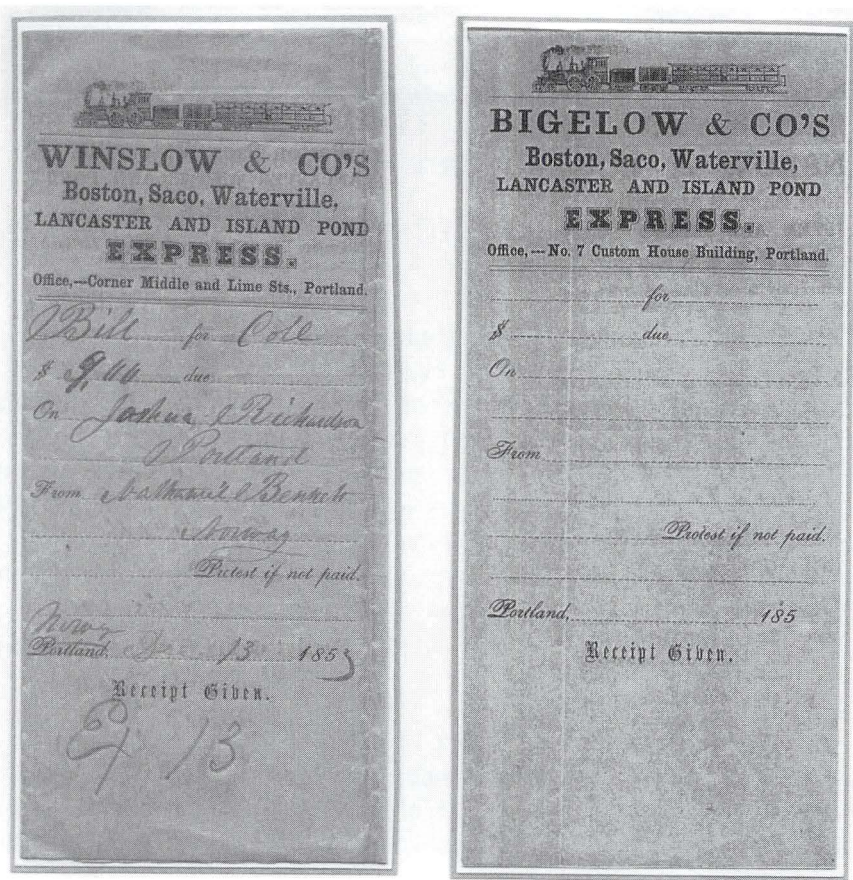 WINSLOW & CO'S
Boston, Saco, Waterville,
LANCASTER AND ISLAND POND
EXPRESS.
Office,—Corner Middle and Lime Sts., Portland.
Bill for Coll
$ 9,00 due
On Joshua Richardson
Portland
From Nathaniel Bennett
Norway
Protest if not paid.
Norway
Portland, 13 1853
Receipt Given.
13
BIGELOW & CO'S
Boston, Saco, Waterville,
LANCASTER AND ISLAND POND
EXPRESS.
Office,—No. 7 Custom House Building, Portland.
for
$ due
On
From
Protest if not paid.
Portland, 185
Receipt Given.